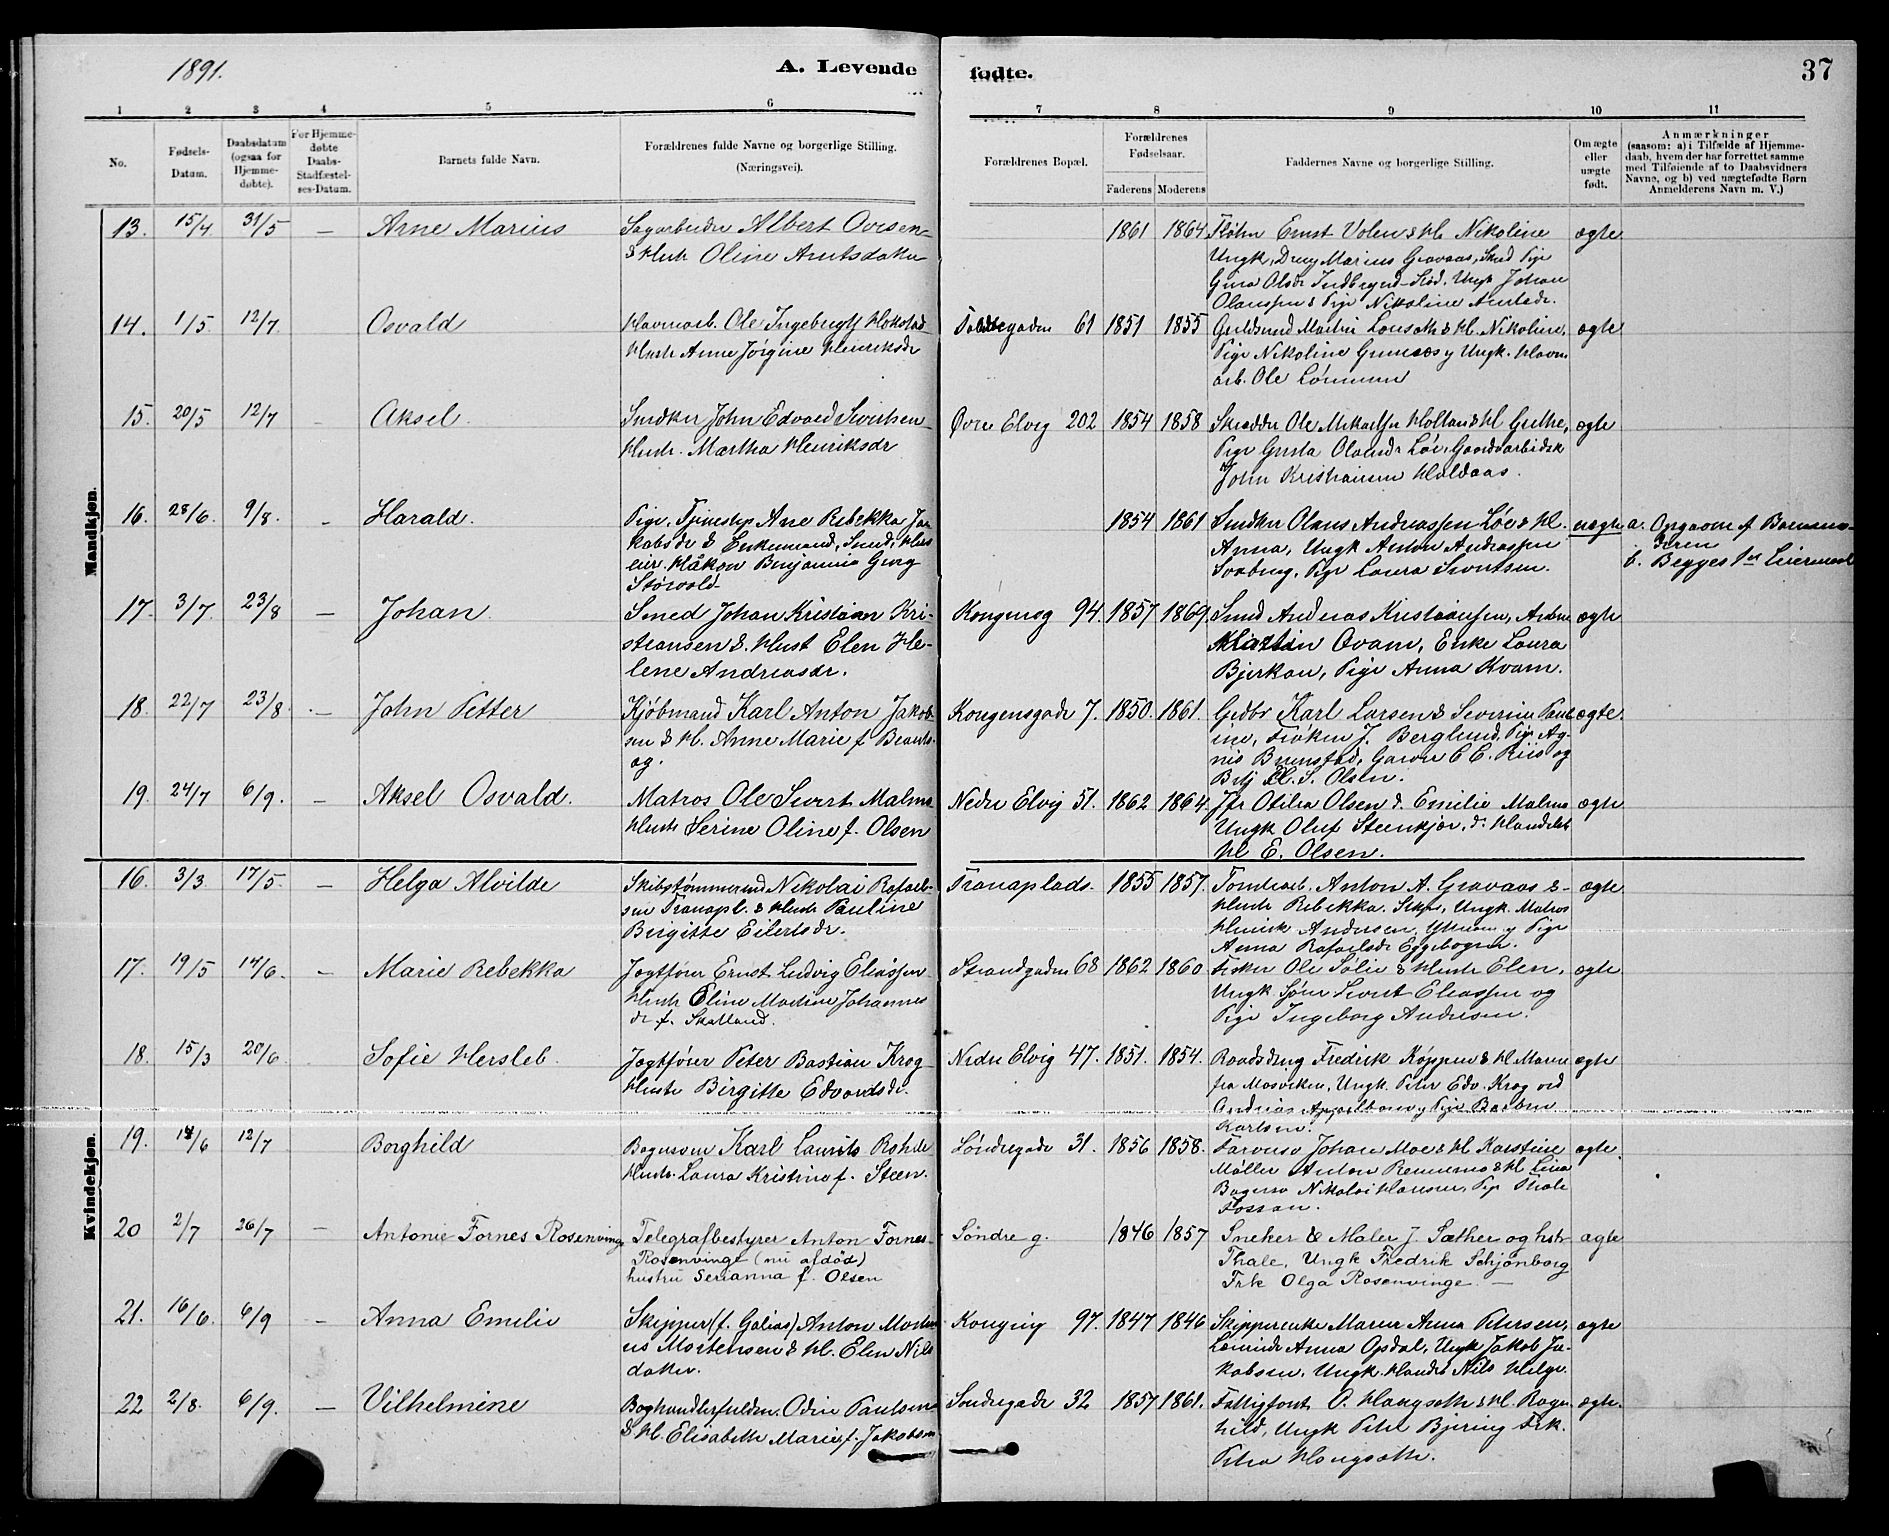 1891.
A. Levende
fødte.
37
1 2 3 4 5 6 7 8 9 10 11
No.
Fødsels-
Datum.
Daabsdatum
(ogsaa for
Hjemme-
døbte).
For Hjemme-
døbte
Daabs-
Stadfæstel-
ses-Datum.
Barnets fulde Navn.
Forældrenes fulde Navne og borgerlige Stilling.
(Næringsvei).
Forældrenes Bopæl.
Forældrenes
Fødselsaar.
Faderens Moderens
Faddernes Navne og borgerlige Stilling.
Om ægte
eller
uægte
født.
Anmærkninger
(saasom: a) i Tilfælde af Hjemme-
daab, hvem der har forrettet samme
med Tilføiende af to Daabsvidners
Navne, og b) ved uægtefødte Børn
Anmelderens Navn m. V.)
Mandkjøn.
13. 15/4 31/5 — Arne Marius
Sagarbeider Albert Ovesen
& Hustr Oline Arntsdatter
1861 1864
Ernst Volen & H. Nikoline
Ungk. Dreng Marius Gravaas, Pige
Gina Olsdr Ungk Johan
Olaussen & Pige Nikoline Arntsdr.
ægte
14. 1/5 12/7 Osvald
Havnearb. Ole Ingebrigts Hokstad
Hustr Anne Jørgine Henriksdr
61 1851 1855
Guldsmed Martin & H. Nikoline,
Pige Nikoline og Ungk. Havne
arb. Ole
ægte
15. 20/5 12/7 - Aksel.
Snedker John Edvard Sivertsen
Hustr. Martha Henriksdr
Øvre Elveg 202 1854 1858
Skrædder Ole Mikalsen & H Grethe,
Pige
John Kristiansen Haldaas.
ægte
16. 28/6. 9/8. - Harald.
Pige, Tjenestep Ane Rebekka Ja-
kobsdr & Enkemand, Smed, Hus
eier Håkon Benjamin Georg
Størvold
1854 1861
Snedker Olaus Andreassen Løe & H.
Anna, Ungk Anton Andreassen
Svaberg, Pige Laura Sivertsen.
uægte
a. Opgaven af Barnemo-
deren
b. Begges 1ste Leiermaal
17. 3/7. 23/8 — Johan
Smed Johan Kristian Kri-
stiansen & Hust Elen He-
lene Andreasdr.
Kongensg 94. 1857 1869.
Smed Andreas Kristiansen,
Martin Qvam, Enke Laura
Bjerkan, Pige Anna Kvam.
ægte
18. 22/7 23/8. — John Petter
Kjøbmand Karl Anton Jakob-
sen & H. Anne Marie f
og.
Kongensgade 7. 1850. 1861.
Gndbr Karl Larsen & Severine Paul-
ine, Frøken J. Berglund, Pige Ag-
nis Garver C. E. Riis og
S. Olsen.
ægte.
19. 24/7 6/9. — Aksel Osvald.
Matros Ole Sivert Malmo
Hustr Serine Oline f. Olsen
Nedre Elveg 51. 1862 1864.
Jfr Otilia Olsen d. Emilie Malmo
Ungk Oluf Steenkjær, d.
H E. Olsen.
ægte
Kvindekjøn.
16. 3/3. 17/5. — Helga Alvilde
Skibstømmermd Nikolai Rafael-
sen Tranapl. & Hustr Pauline
Birgitte Eilertsdr.
Tranaplads. 1855 1857.
Tomtearb. Anton A. Gravaas &
Hustr Rebekka. Ungk. Matros
Henrik Andersen, og Pige
Anna Rafaelsdr Eggebogen.
ægte
17. 19/5 14/6. — Marie Rebekka
Jagtfører Ernst Ludvig Eliassen
Hustr Eline Martine Johannes
dr f. Skatland.
Strandgaden 68 1862 1860.
Fisker Ole Sølie & Hustr Elen,
Ungk Sivert Eliassen og
Pige Ingeborg Andresen.
ægte
18. 15/3 20/6. — Sofie Hersleb.
Jagtfører Peter Bastian Krog
Hustr Birgitte Edvardsdr.
Nedre Elvig 47. 1851. 1854.
Fredrik Køppen & H Maren
fra Mosviken, Ungk. Peter Edv. Krog ved
Andreas og Pige
Karlsen.
ægte
19. 14/6 12/7 Borghild
Bagersven Karl Laurits Rohde
Hustr. Laura Kristine f. Steen.
Søndregade 31. 1856 1858.
Johan Moe & H Karstine
Møller Anton & H Lina
Nikolai Hansen, Pige Thale
Fossan.
ægte.
20 2/7 26/7 — Antonie Fornes Rosenvinge
Telegrafbestyrer Anton Fornes
Rosenvinge (nu afdød)
hustru Serianna f. Olsen
Søndre g. 1846 1857
Sneker & Maler J. Sæther og hstr
Thale, Ungk Fredrik Schjønborg
Frk Olga Rosenvinge. —
ægte
21. 16/6. 6/9 — Anna Emilie
Skipper (f. Galias) Anton
us Mortensen & H. Elen Nils
datter.
97. 1847 1846
Skipperenke Maren Anna Petersen,
Anna Opdal, Ungk Jakob Ja-
kobsen, Ungk. Nils Helge.
ægte
22 2/8. 6/9. — Vilhelmine
Boghandlerfuldm. Odin Paulsen
& H. Elisabeth Marie f. Jakobsen
Søndregade 32 1857 1861.
Fattigfont O. Haugseth & H. Ragn-
hild, Ungk Peter Bjering Frk.
Petra Haugseth.
ægte.